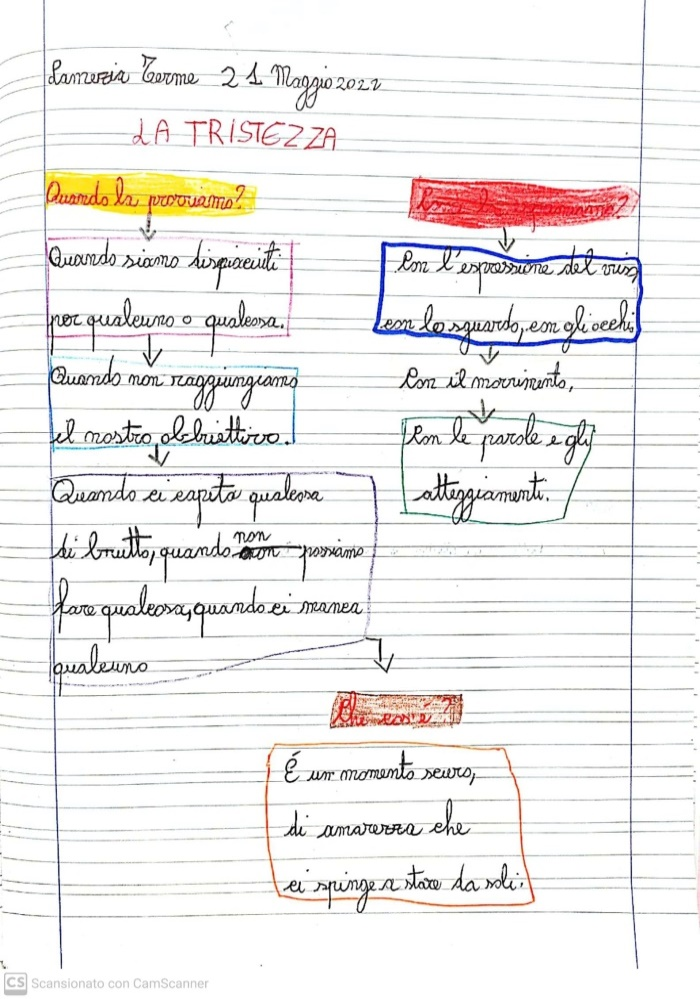 Lamezia Terme 21 Maggio 2022
LA TRISTEZZA
Quando la proviamo?
Quando siamo dispiaciuti
per qualcuno o qualcosa.
Quando non raggiungiamo
il nostro obbiettivo.
Quando ci capita qualcosa
di brutto, quando non possiamo
fare qualcosa, quando ci manca
qualcuno
la esprimiamo?
Con l'espressione del viso,
con lo sguardo, con gli occhi
Con il movimento,
Con le parole e gli
atteggiamenti.
Che cos'è?
É un momento scuro,
di amarezza che
ci spinge a stare da soli.
CS Scansionato con CamScanner